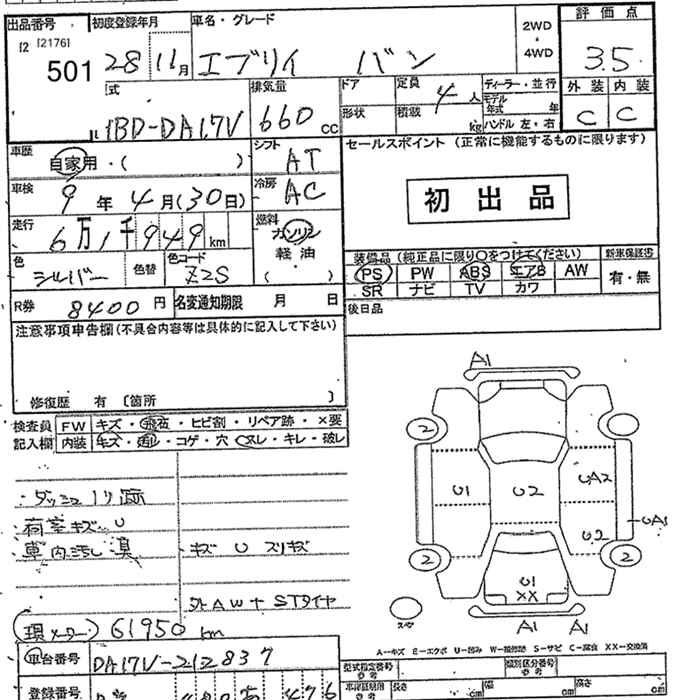 出品番号 初度登録年月 車名・グレード 2WD・4WD 評価点
12 [2176]
501 28 11月 エブリイ バン 3.5
式 排気量 ドア 定員 4人 ディーラー・並行 外装 内装
HBD-DA17V 660cc 形状 積載 kg モデル年式 年 C C
ハンドル 左・右
車歴 シフト セールスポイント (正常に機能するものに限ります)
自家用・( ) AT
車検 9年4月(30日) 冷房 AC 初出品
走行 6万1千949km 燃料 ガソリン
軽油
( )
色 シルバー 色替 色コード Z2S
装備品 (純正品に限り○をつけてください) 新車保証書
PS PW ABS エアB AW 有・無
SR ナビ TV カワ
R券 8400円 名変通知期限 月 日 後日品
注意事項申告欄(不具合内容等は具体的に記入して下さい)
修復歴 有 〔箇所 〕
検査員 FW キズ・飛石・ヒビ割・リペア跡・×要
記入欄 内装 キズ・汚れ・コゲ・穴・スレ・キレ・破レ
・ダッシュノリ跡
・荷室キズ・U
・車内汚し臭 ・キズ U スリキズ
・外AW+STタイヤ
(現メーター) 61950 km
車台番号 DA17V-212837
登録番号
A1
2 2
U1 U2 UA2
UA1
U2
2 2
U1
XX
スペア A1 A1
A-キズ E-エクボ U-凹み W-補修跡 S-サビ C-腐食 XX-交換済
型式指定番号 類別区分番号
長さ cm 幅 cm 高さ cm